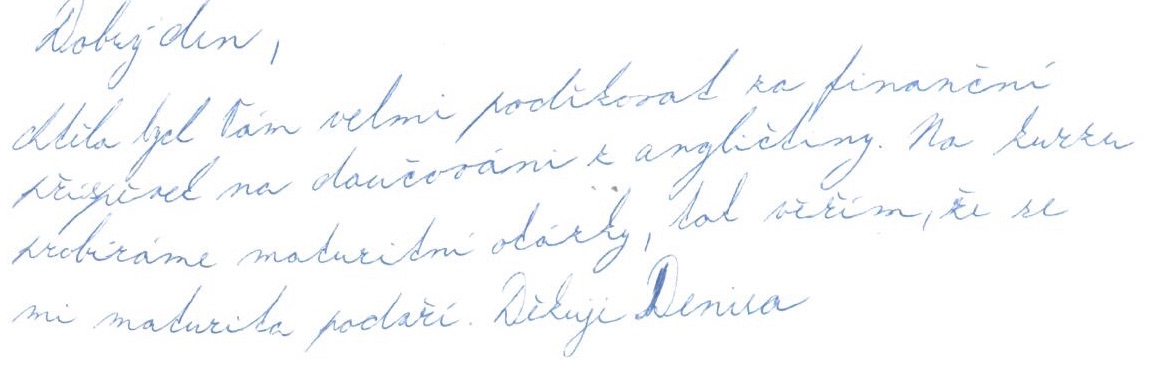 Dobrý den,
chtěla bych Vám velmi poděkovat za finanční
příspěvek na doučování z angličtiny. Na kurzu
probíráme maturitní otázky, tak věřím, že se
mi maturita podaří. Děkuji Denisa